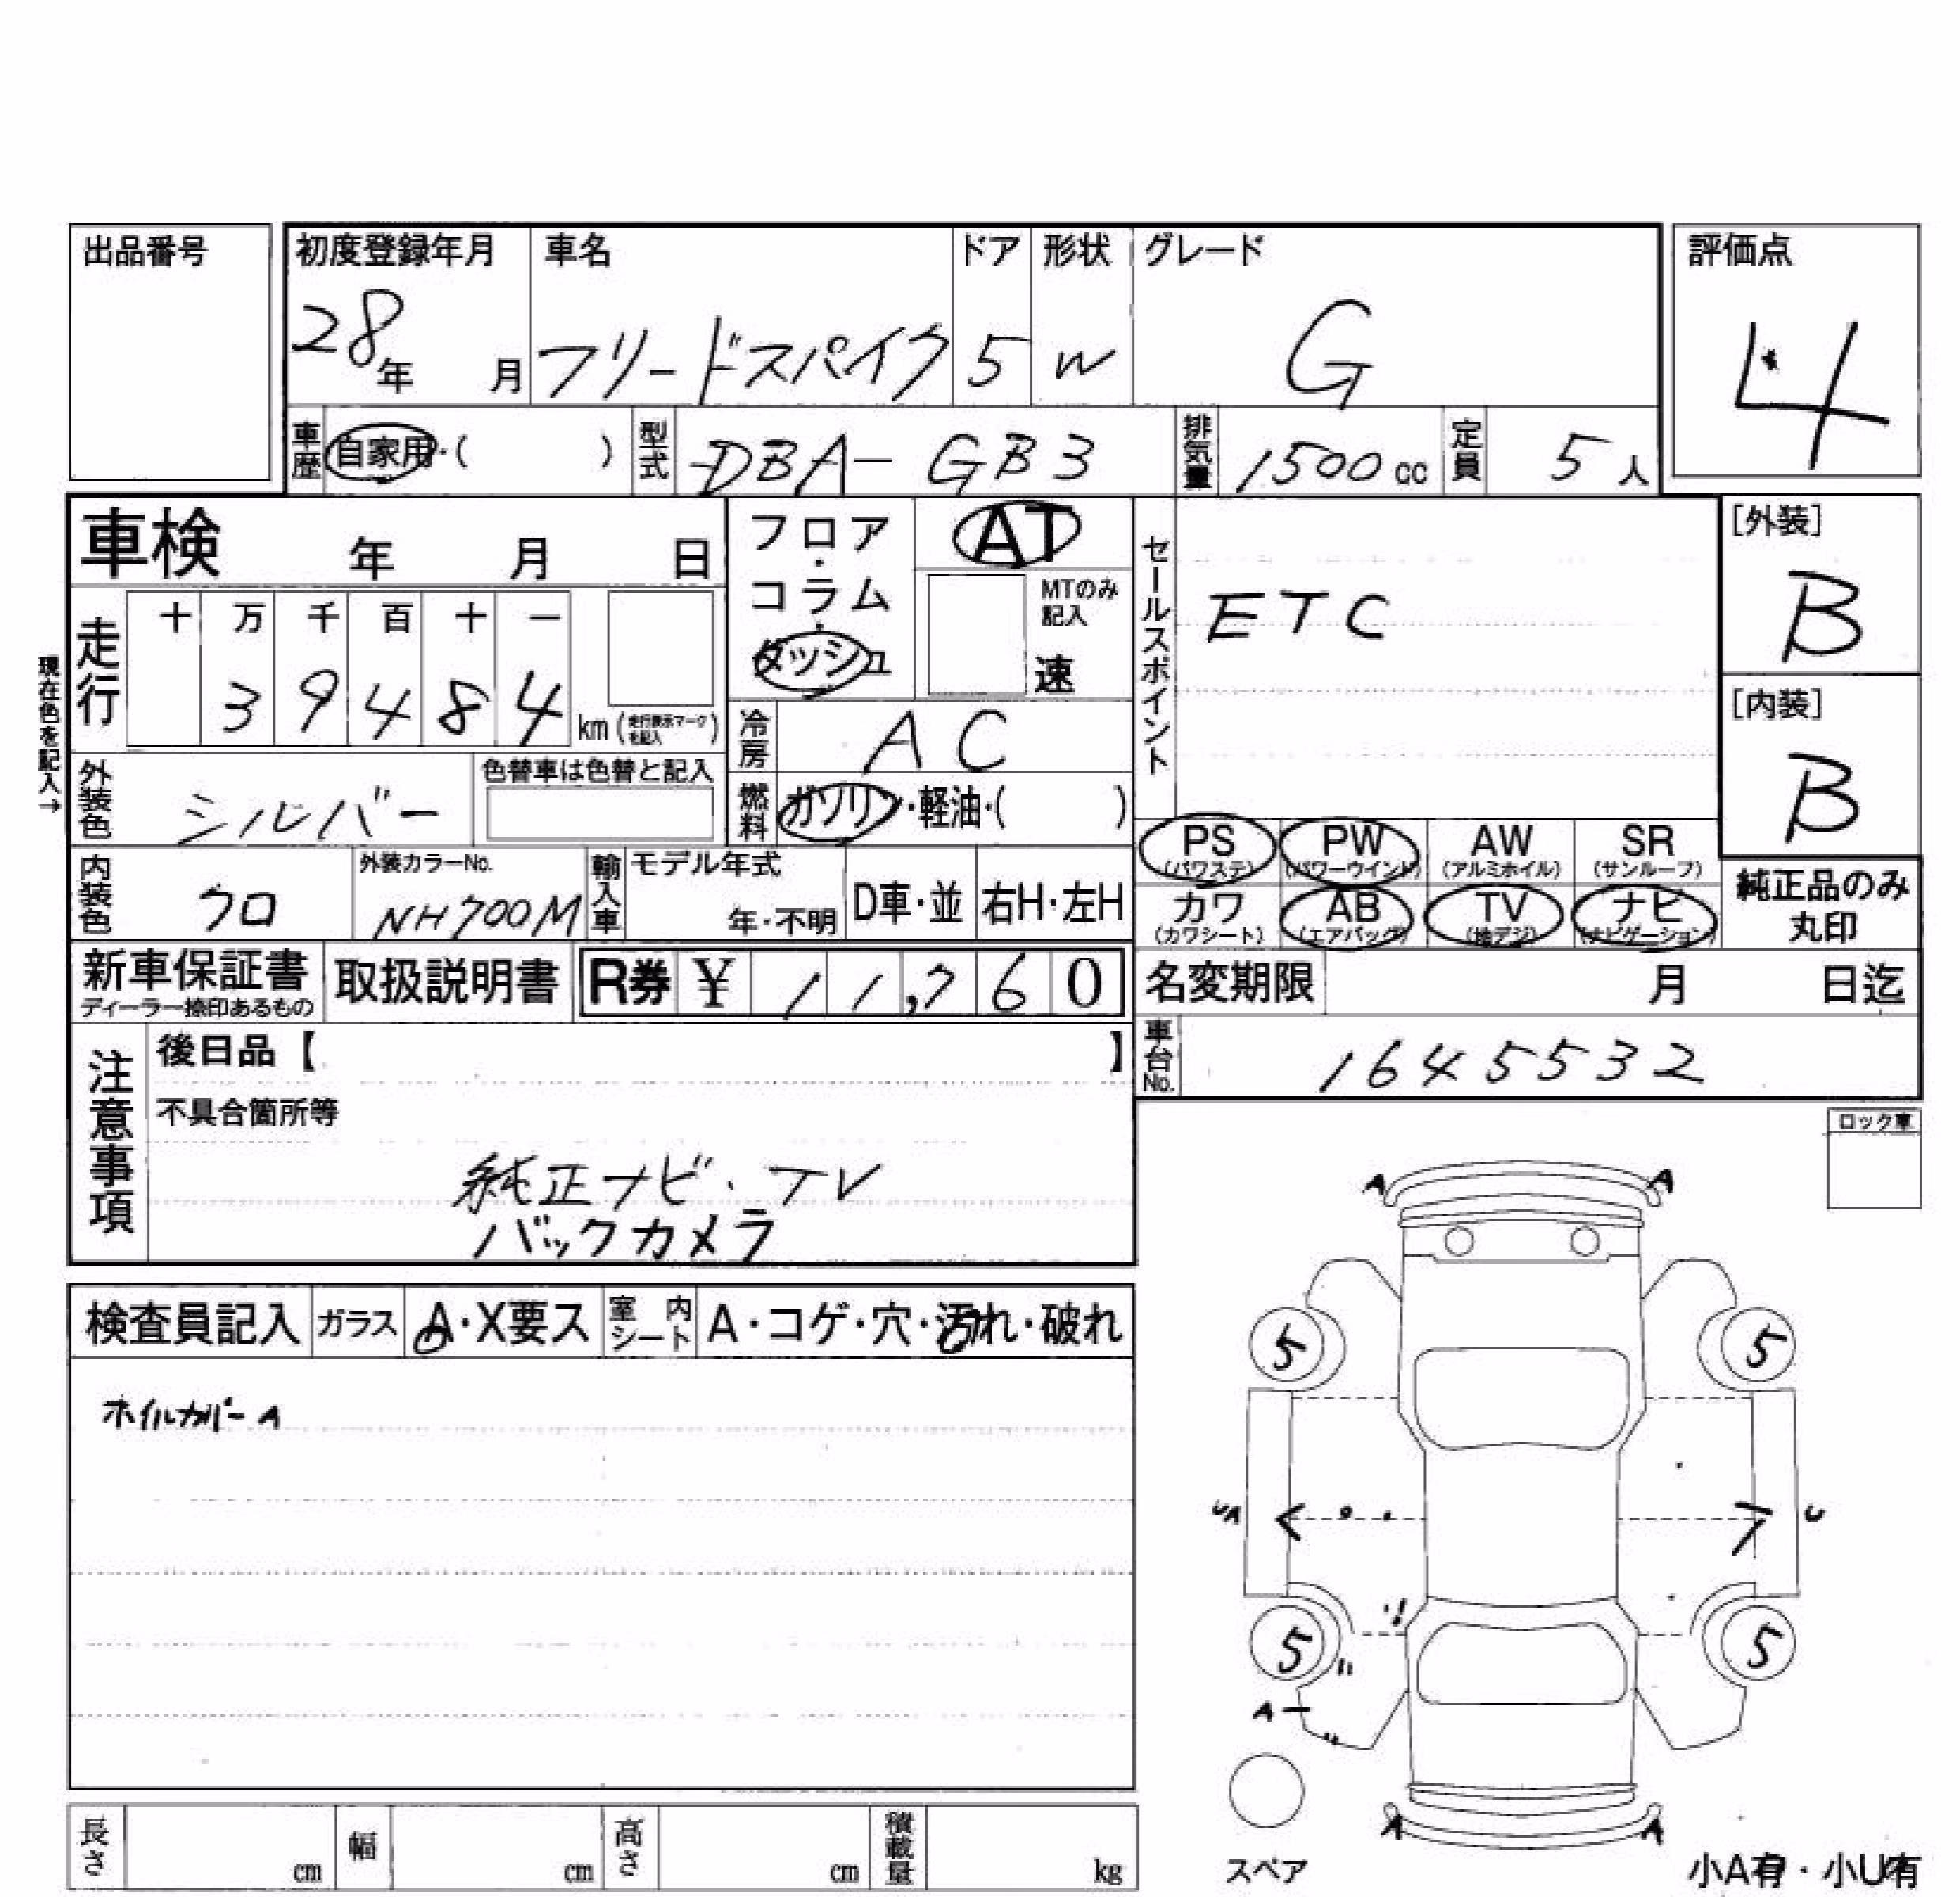 出品番号
初度登録年月 車名 ドア 形状 グレード 評価点
28年 月 フリードスパイク 5 W G 4
車歴 自家用・( ) 型式 DBA-GB3 排気量 1500cc 定員 5人
車検 年 月 日
フロア・コラム・ダッシュ AT
MTのみ記入 速
セールスポイント ETC
[外装] B
[内装] B
現在色を記入→
走行 十 万 千 百 十 一
3 9 4 8 4 km (走行表示マークを記入)
冷房 AC
外装色 シルバー 色替車は色替と記入
燃料 ガソリン・軽油・( )
PS (パワステ) PW (パワーウインド) AW (アルミホイル) SR (サンルーフ)
カワ (カワシート) AB (エアバッグ) TV (地デジ) ナビ (ナビゲーション)
純正品のみ丸印
内装色 クロ 外装カラーNo. NH700M 輸入車 モデル年式 年・不明 D車・並 右H・左H
新車保証書 ディーラー捺印あるもの 取扱説明書 R券 ¥ 11,760
名変期限 月 日迄
車台No. 1645532
注意事項 後日品【 】
不具合箇所等
純正ナビ・TV
バックカメラ
ロック車
検査員記入 ガラス A・X要ス 室内シート A・コゲ・穴・汚れ・破れ
ホイルカバーA
A A
5 5
UA U
5 5
A
A A
スペア
小A有・小U有
長さ cm 幅 cm 高さ cm 積載量 kg